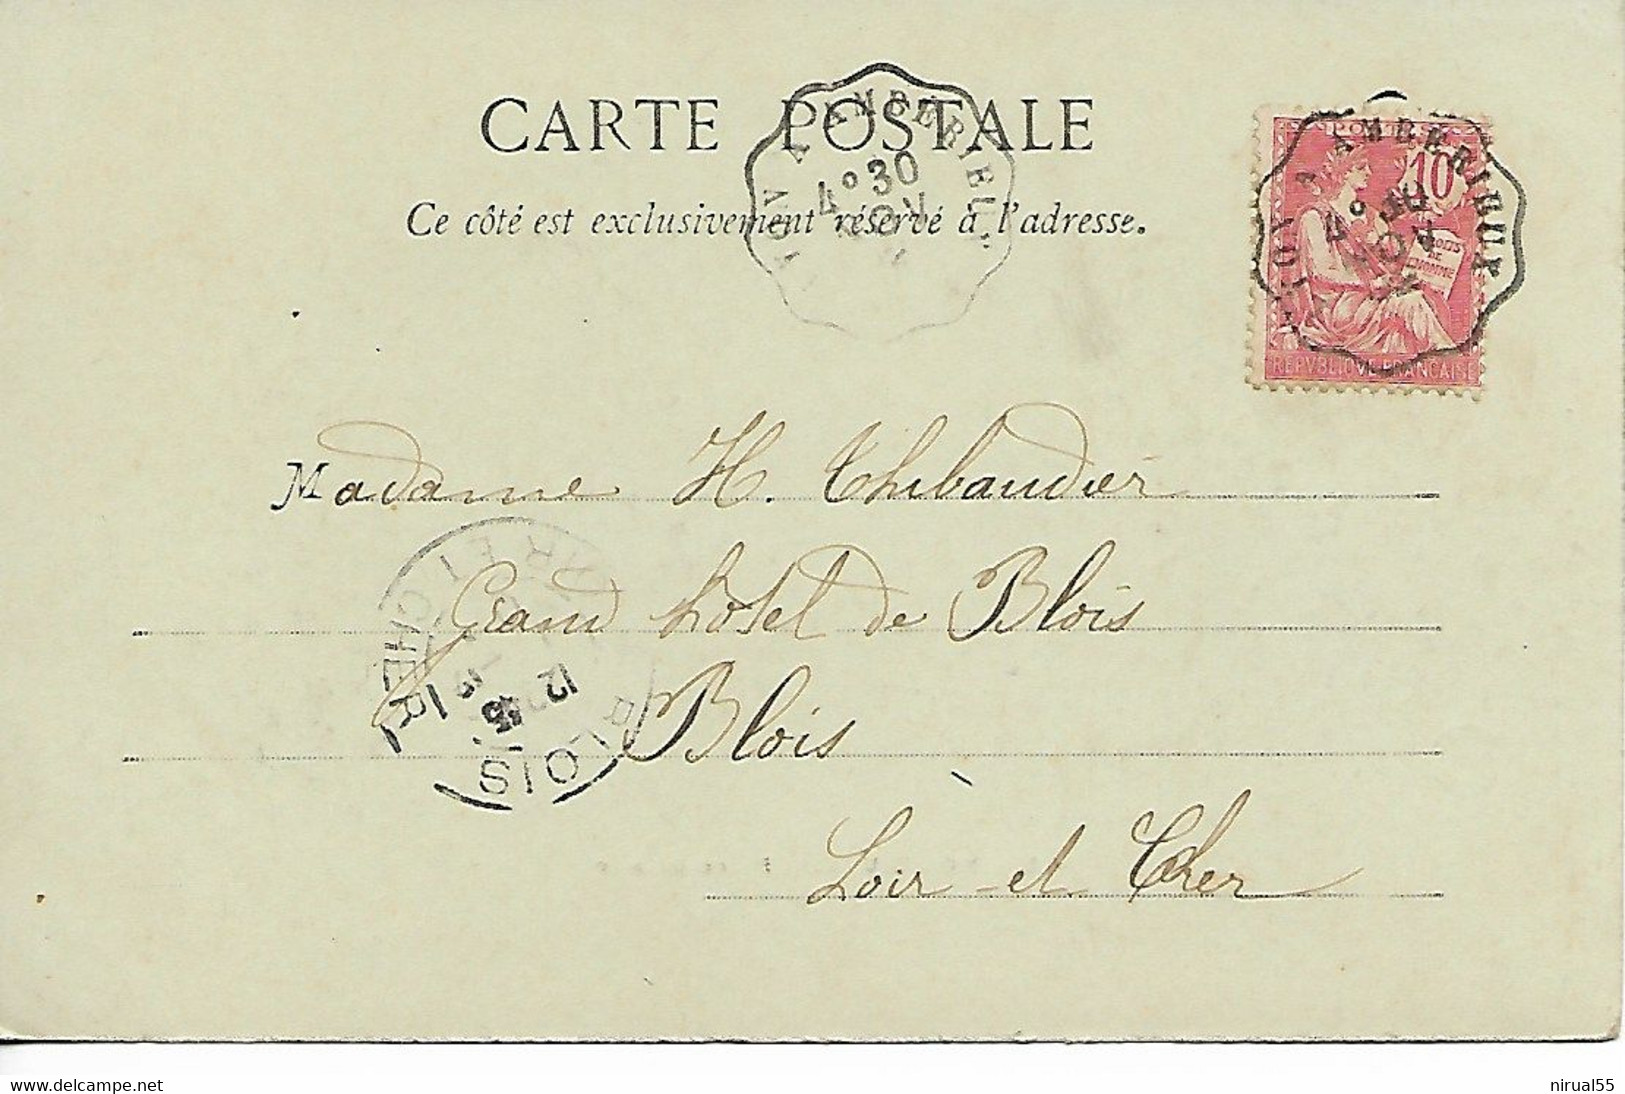 CARTE POSTALE
Ce côté est exclusivement réservé à l'adresse.
A AMBÉRIEU
4° 30
NOV
POSTES
10
DROITS
DE
L'HOMME
REPVBLIQVE FRANÇAISE
A AMBÉRIEUX
4°
Madame H. Thibaudier
Grand hotel de Blois
Blois
Loir-et Cher
BLOIS
LOIR ET CHER
12
delcampe.net
nirual55